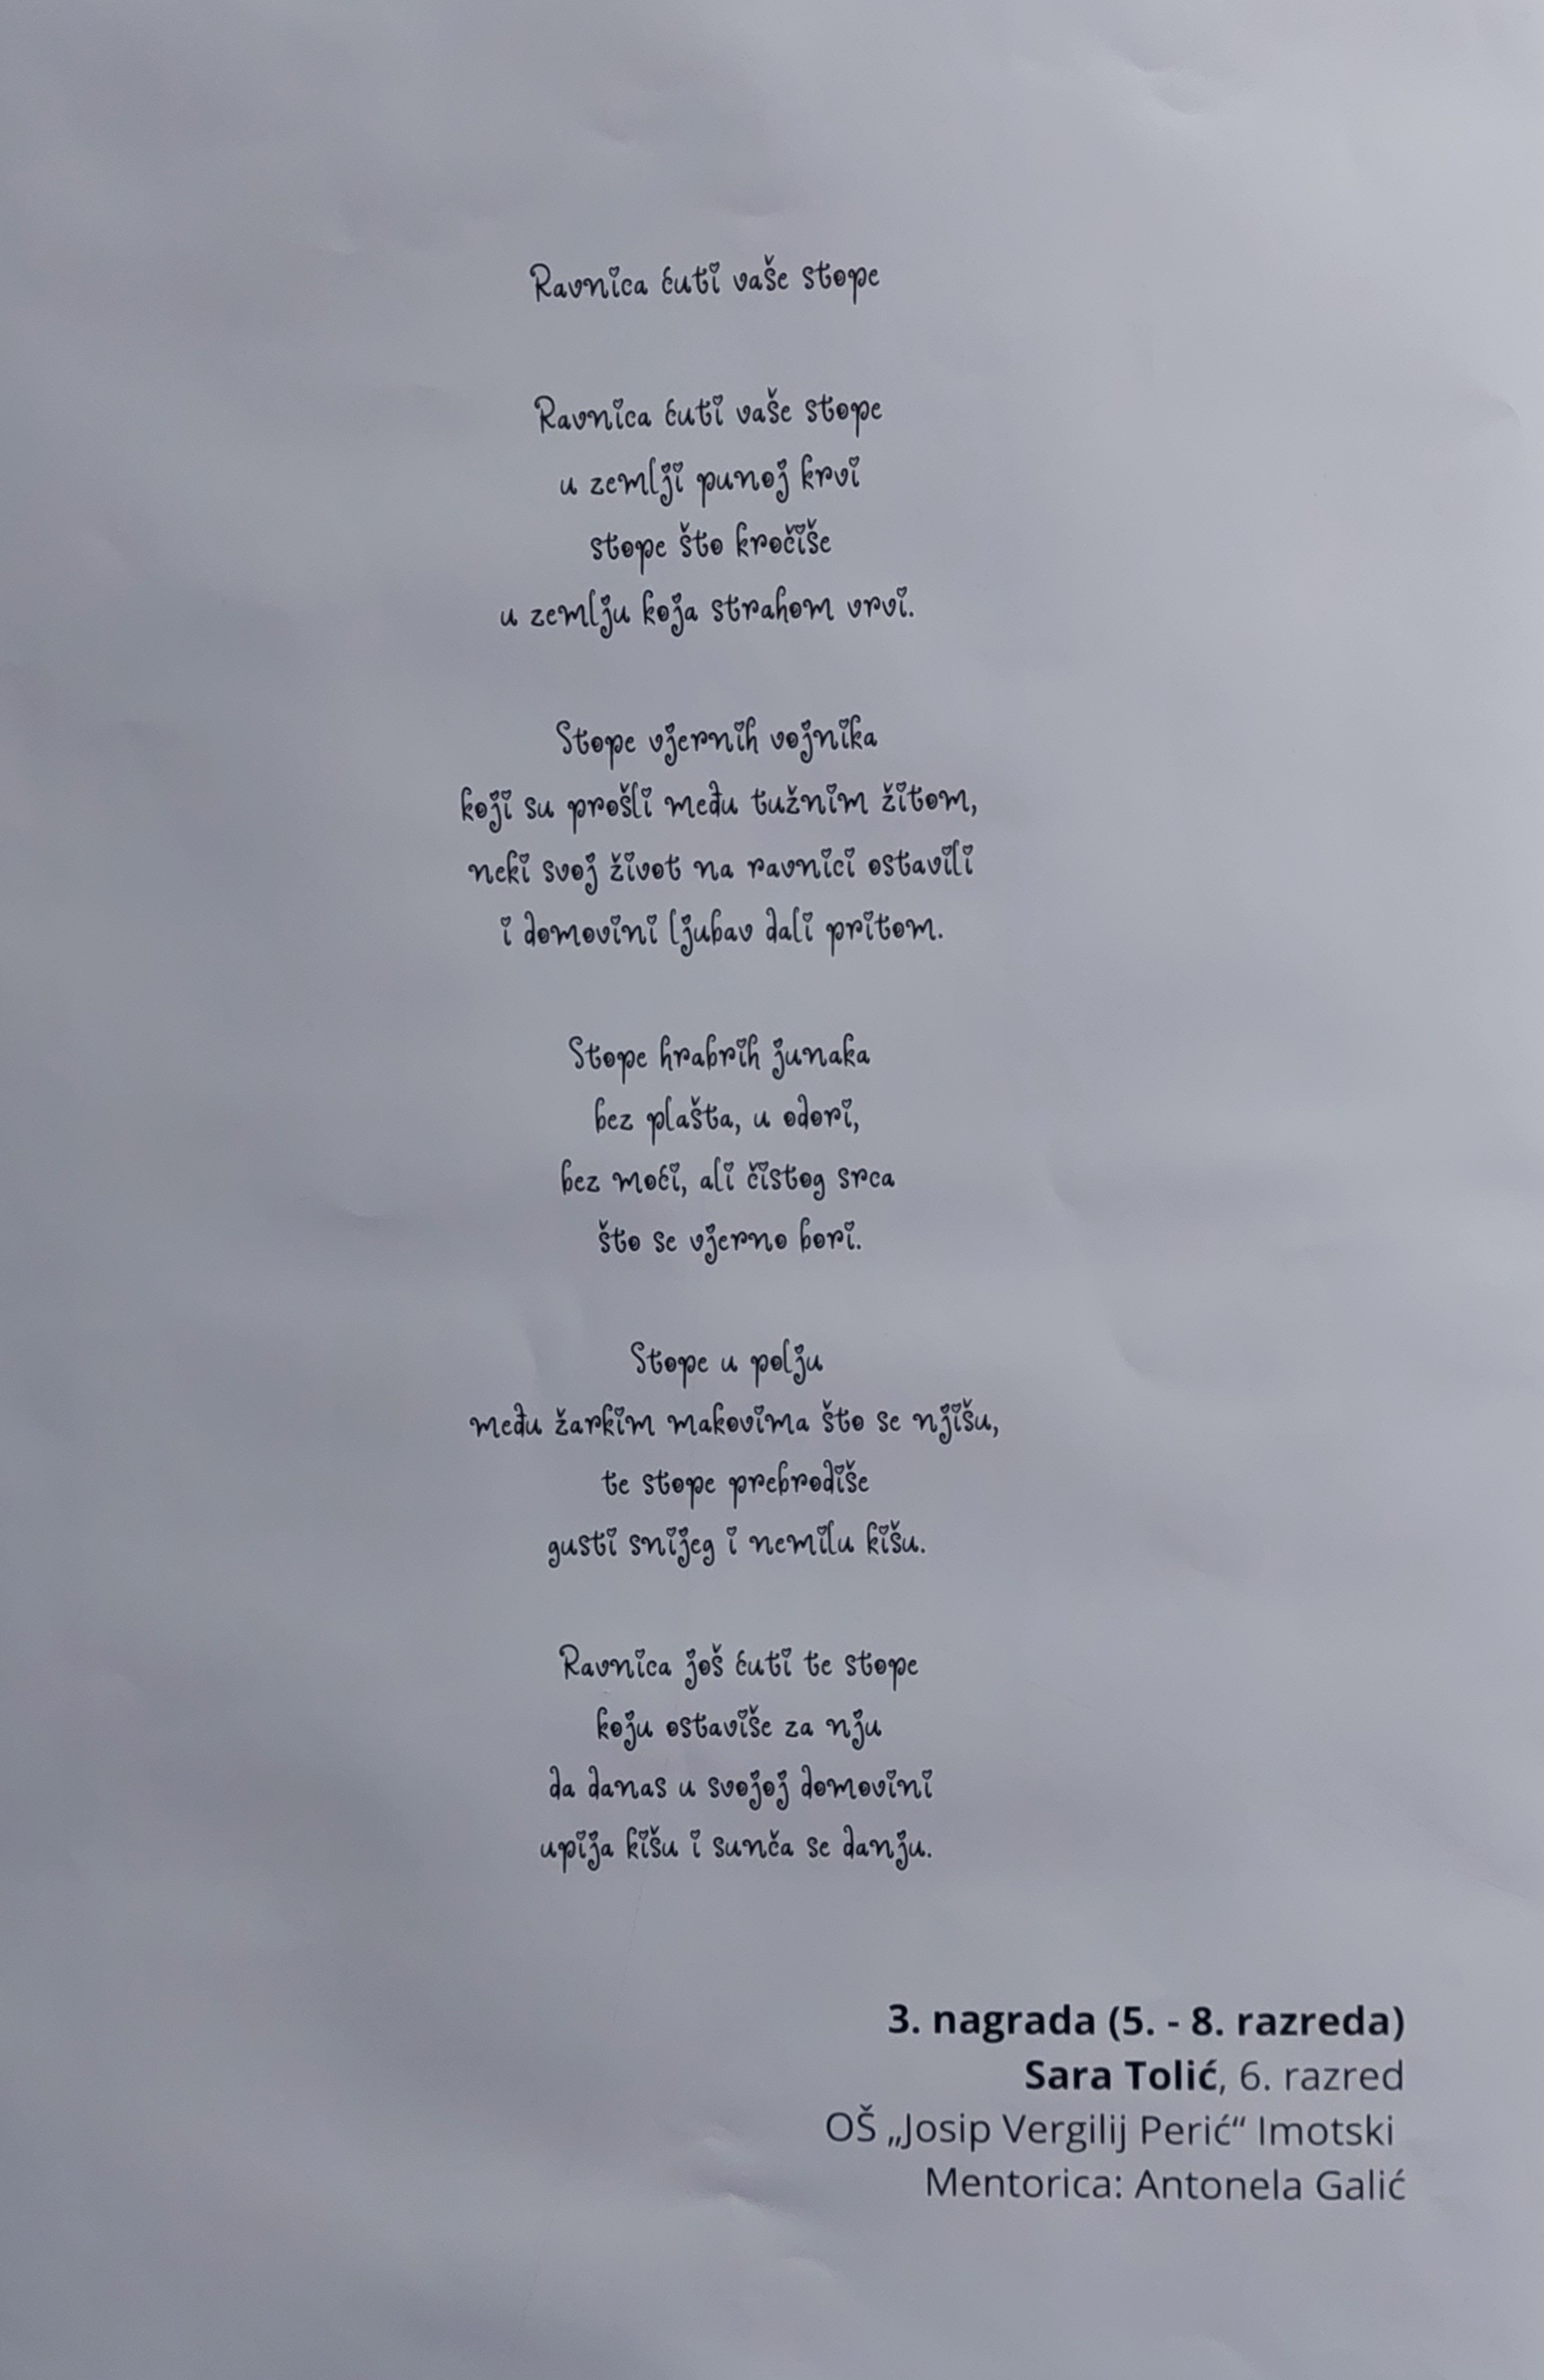 Ravnica ćuti vaše stope
Ravnica ćuti vaše stope
u zemlji punoj krvi
stope što kročiše
u zemlju koja strahom vrvi.
Stope vjernih vojnika
koji su prošli među tužnim žitom,
neki svoj život na ravnici ostavili
i domovini ljubav dali pritom.
Stope hrabrih junaka
bez plašta, u odori,
bez moći, ali čistog srca
što se vjerno bori.
Stope u polju
među žarkim makovima što se njišu,
te stope prebrodiše
gusti snijeg i nemilu kišu.
Ravnica još ćuti te stope
koju ostaviše za nju
da danas u svojoj domovini
upija kišu i sunča se danju.
3. nagrada (5. - 8. razreda)
Sara Tolić, 6. razred
OŠ „Josip Vergilij Perić“ Imotski
Mentorica: Antonela Galić